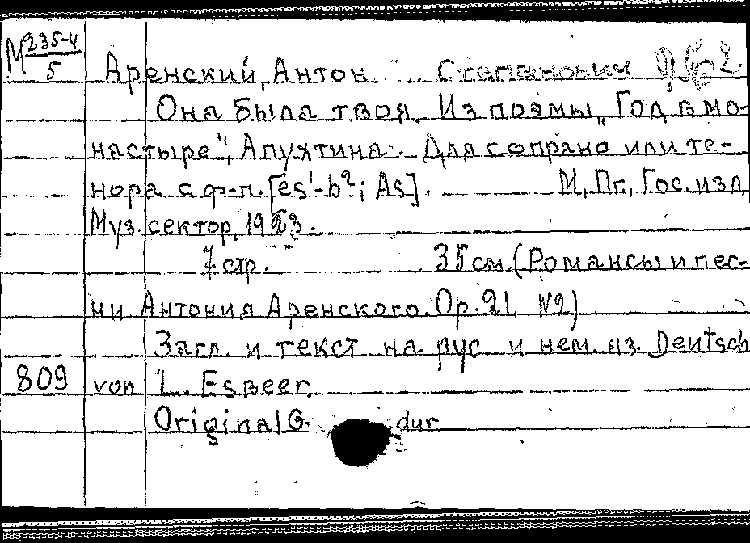 М 235-4
5
Аренский, Антон Степанович
Она была твоя. Из поэмы „Год в мо-
настыре", Апухтина. Для сопрано или те-
нора с ф-п. [es'-b²; As]. М., Пг., Гос. изд.
Муз. сектор, 1923.
7 стр. 35 см. (Романсы и пес-
ни Антония Аренского. Op. 21 №2)
Загл. и текст на рус. и нем. яз. Deutsch
809 von L. Esbeer.
Original G dur